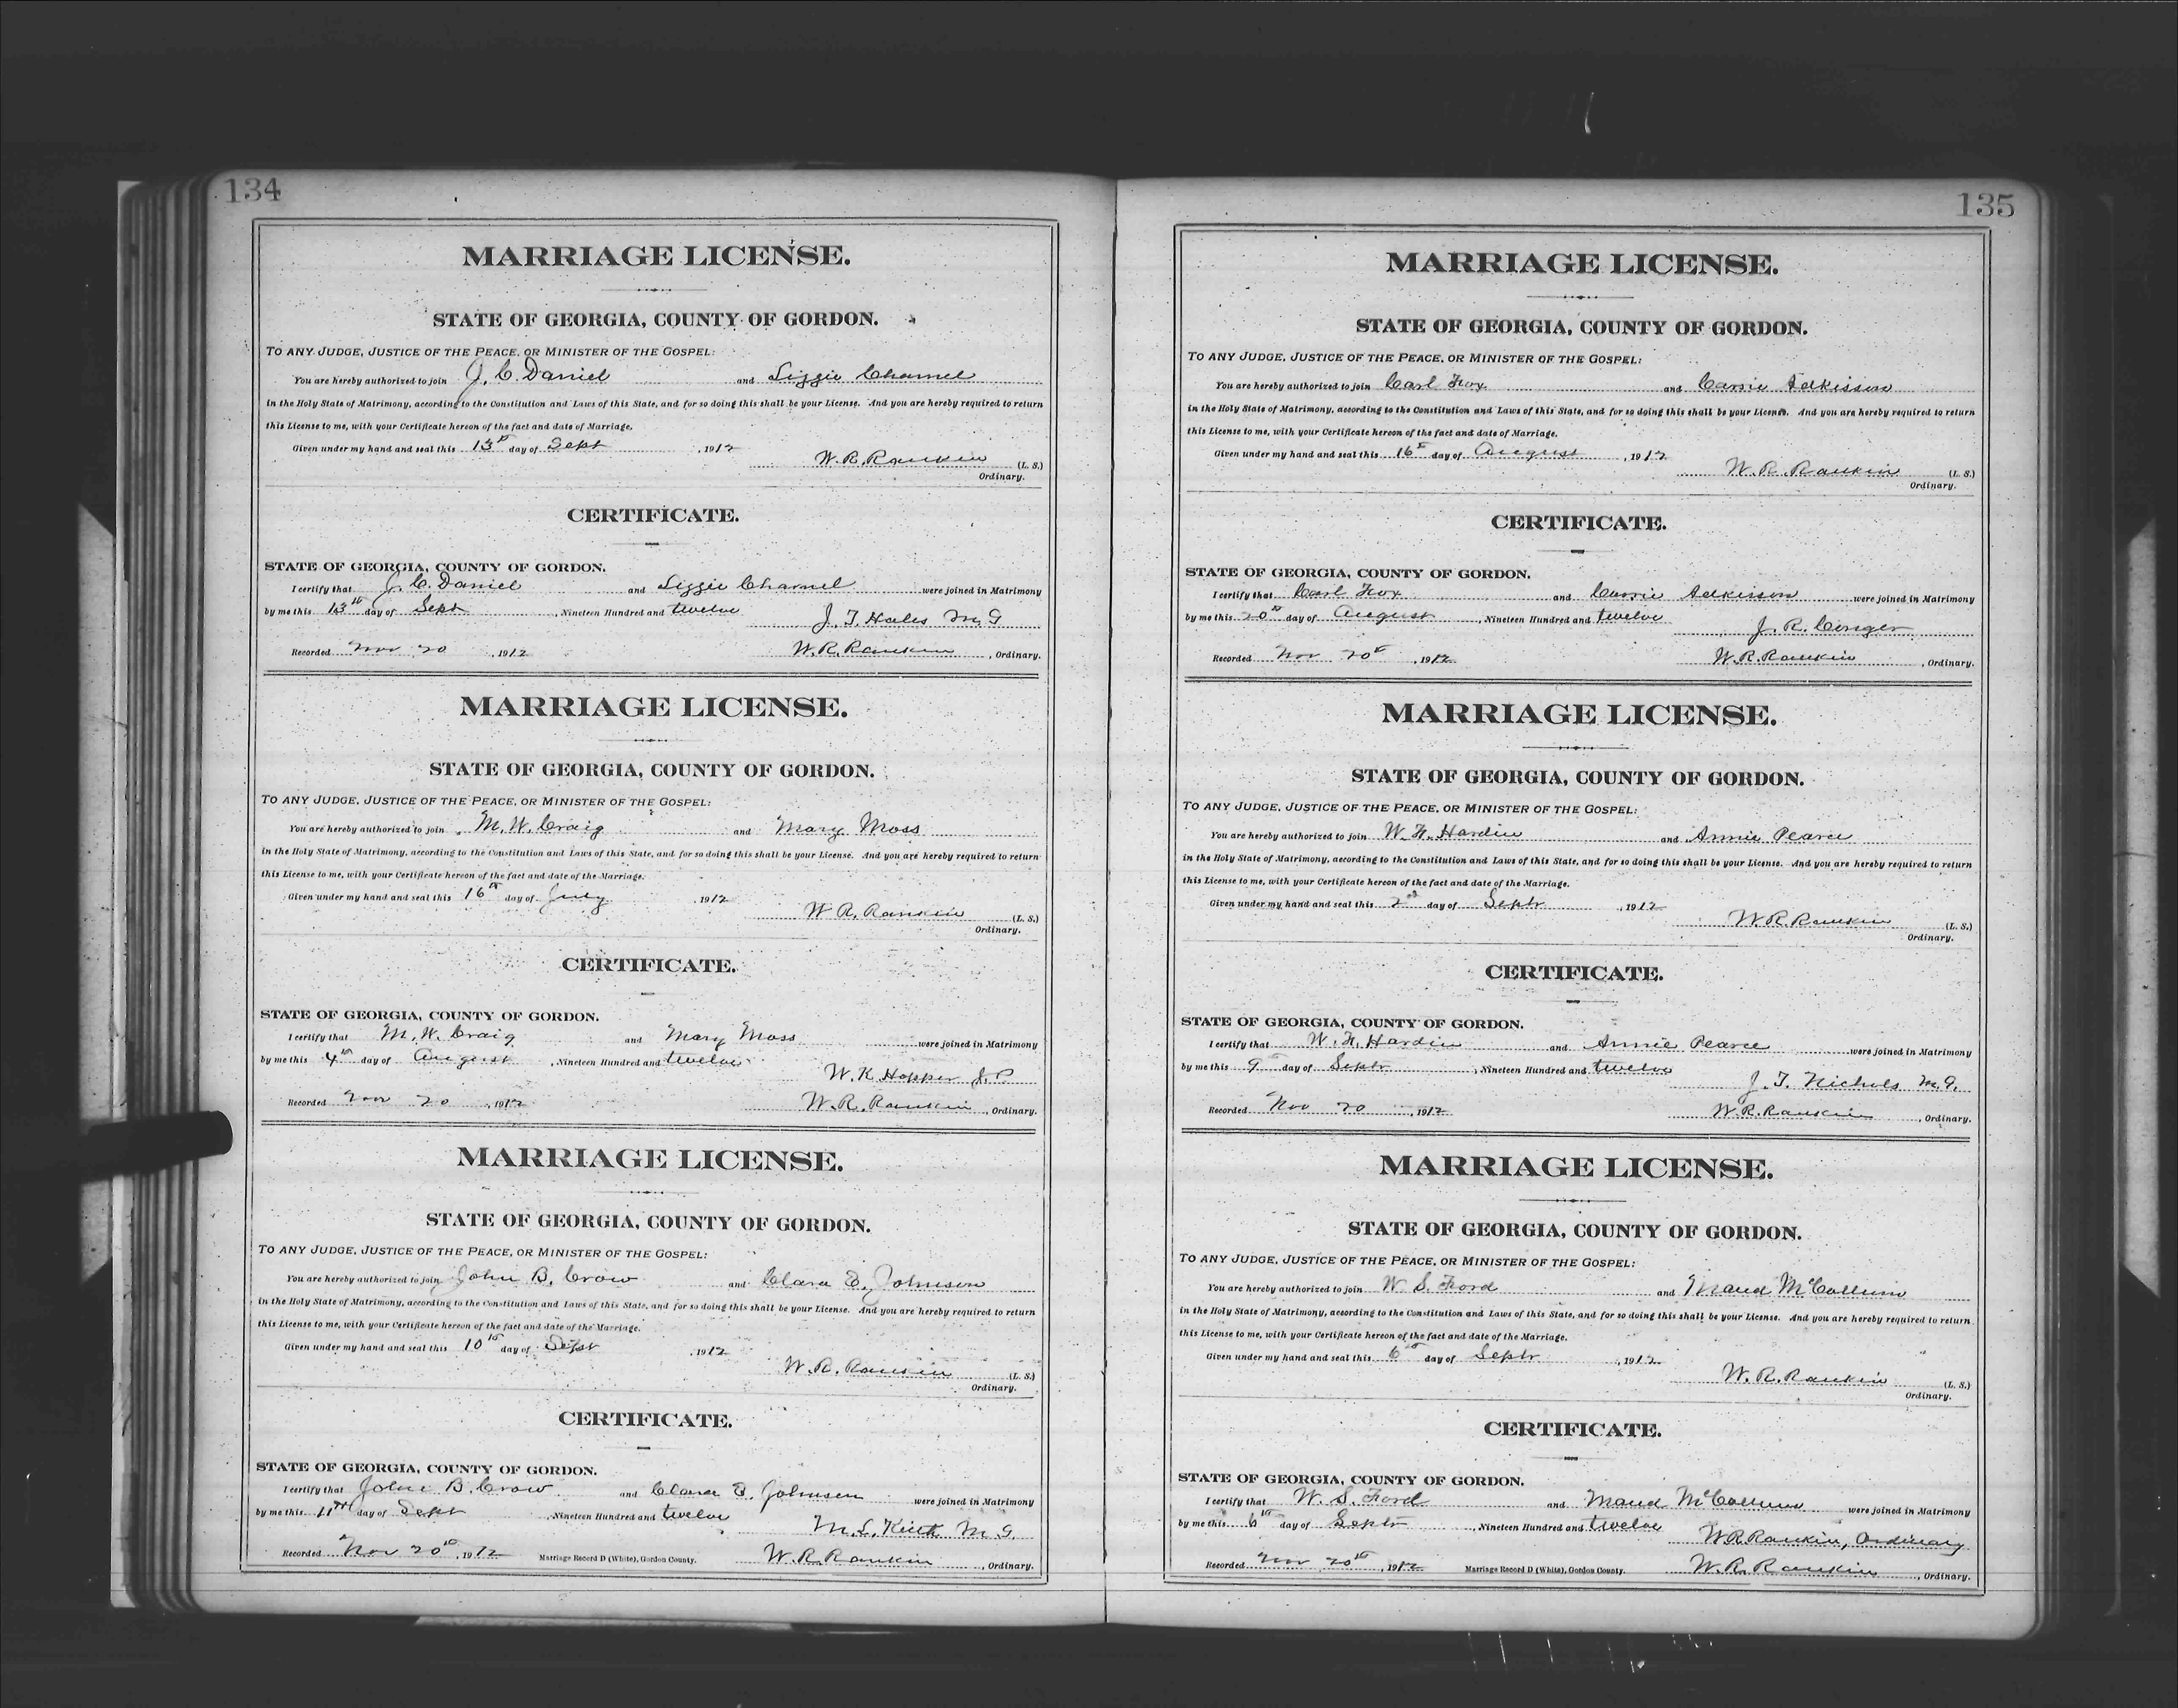 134
MARRIAGE LICENSE.
STATE OF GEORGIA, COUNTY OF GORDON.
TO ANY JUDGE, JUSTICE OF THE PEACE, OR MINISTER OF THE GOSPEL:
You are hereby authorized to join J. C. Daniel and Lizzie Charnel
in the Holy State of Matrimony, according to the Constitution and Laws of this State, and for so doing this shall be your License. And you are hereby required to return
this License to me, with your Certificate hereon of the fact and date of Marriage.
Given under my hand and seal this 13th day of Sept , 1912
W. R. Rankin (L. S.)
Ordinary.
CERTIFICATE.
STATE OF GEORGIA, COUNTY OF GORDON.
I certify that J. C. Daniel and Lizzie Charnel were joined in Matrimony
by me this 13th day of Sept , Nineteen Hundred and twelve
J. T. Hales M G
Recorded Nov 20 , 1912 W. R. Rankin , Ordinary.
MARRIAGE LICENSE.
STATE OF GEORGIA, COUNTY OF GORDON.
TO ANY JUDGE, JUSTICE OF THE PEACE, OR MINISTER OF THE GOSPEL:
You are hereby authorized to join M. W. Craig and Mary Moss
in the Holy State of Matrimony, according to the Constitution and Laws of this State, and for so doing this shall be your License. And you are hereby required to return
this License to me, with your Certificate hereon of the fact and date of the Marriage.
Given under my hand and seal this 16th day of July 1912
W R. Rankin (L. S.)
Ordinary.
CERTIFICATE.
STATE OF GEORGIA, COUNTY OF GORDON.
I certify that M. W. Craig and Mary Moss were joined in Matrimony
by me this 4th day of August , Nineteen Hundred and twelve
W. K Hopper J. P
Recorded Nov 20 , 1912 W. R. Rankin , Ordinary.
MARRIAGE LICENSE.
STATE OF GEORGIA, COUNTY OF GORDON.
TO ANY JUDGE, JUSTICE OF THE PEACE, OR MINISTER OF THE GOSPEL:
You are hereby authorized to join John B. Crow and Clara E. Johnson
in the Holy State of Matrimony, according to the Constitution and Laws of this State, and for so doing this shall be your License. And you are hereby required to return
this License to me, with your Certificate hereon of the fact and date of the Marriage.
Given under my hand and seal this 10th day of Sept , 1912
W. R. Rankin (L. S.)
Ordinary.
CERTIFICATE.
STATE OF GEORGIA, COUNTY OF GORDON.
I certify that John B. Crow and Clara E. Johnson were joined in Matrimony
by me this 11th day of Sept , Nineteen Hundred and twelve
M. L. Keith M G.
Recorded Nov 20th , 1912 Marriage Record D (White), Gordon County. W. R. Rankin , Ordinary.
135
MARRIAGE LICENSE.
STATE OF GEORGIA, COUNTY OF GORDON.
TO ANY JUDGE, JUSTICE OF THE PEACE, OR MINISTER OF THE GOSPEL:
You are hereby authorized to join Carl Fox and Carrie Adkisson
in the Holy State of Matrimony, according to the Constitution and Laws of this State, and for so doing this shall be your License. And you are hereby required to return
this License to me, with your Certificate hereon of the fact and date of Marriage.
Given under my hand and seal this 16th day of August , 1912
W. R. Rankin (L. S.)
Ordinary.
CERTIFICATE.
STATE OF GEORGIA, COUNTY OF GORDON.
I certify that Carl Fox and Carrie Adkisson were joined in Matrimony
by me this 20th day of August , Nineteen Hundred and twelve
J. R. Conger
Recorded Nov 20th , 1912 W. R. Rankin , Ordinary.
MARRIAGE LICENSE.
STATE OF GEORGIA, COUNTY OF GORDON.
TO ANY JUDGE, JUSTICE OF THE PEACE, OR MINISTER OF THE GOSPEL:
You are hereby authorized to join W. H. Hardin and Annie Pearce
in the Holy State of Matrimony, according to the Constitution and Laws of this State, and for so doing this shall be your License. And you are hereby required to return
this License to me, with your Certificate hereon of the fact and date of the Marriage.
Given under my hand and seal this 2nd day of Septr , 1912
W. R. Rankin (L. S.)
Ordinary.
CERTIFICATE.
STATE OF GEORGIA, COUNTY OF GORDON.
I certify that W. H. Hardin and Annie Pearce were joined in Matrimony
by me this 9th day of Septr , Nineteen Hundred and twelve
J. T. Nichols M. G.
Recorded Nov 20 , 1912 W. R. Rankin , Ordinary.
MARRIAGE LICENSE.
STATE OF GEORGIA, COUNTY OF GORDON.
TO ANY JUDGE, JUSTICE OF THE PEACE, OR MINISTER OF THE GOSPEL:
You are hereby authorized to join W. S. Ford and Maud McCollum
in the Holy State of Matrimony, according to the Constitution and Laws of this State, and for so doing this shall be your License. And you are hereby required to return
this License to me, with your Certificate hereon of the fact and date of the Marriage.
Given under my hand and seal this 6th day of Septr , 1912
W. R. Rankin (L. S.)
Ordinary.
CERTIFICATE.
STATE OF GEORGIA, COUNTY OF GORDON.
I certify that W. S. Ford and Maud McCollum were joined in Matrimony
by me this 6th day of Septr , Nineteen Hundred and twelve
W R Rankin, Ordinary
Recorded Nov 20th , 1912 Marriage Record D (White), Gordon County. W. R. Rankin , Ordinary.